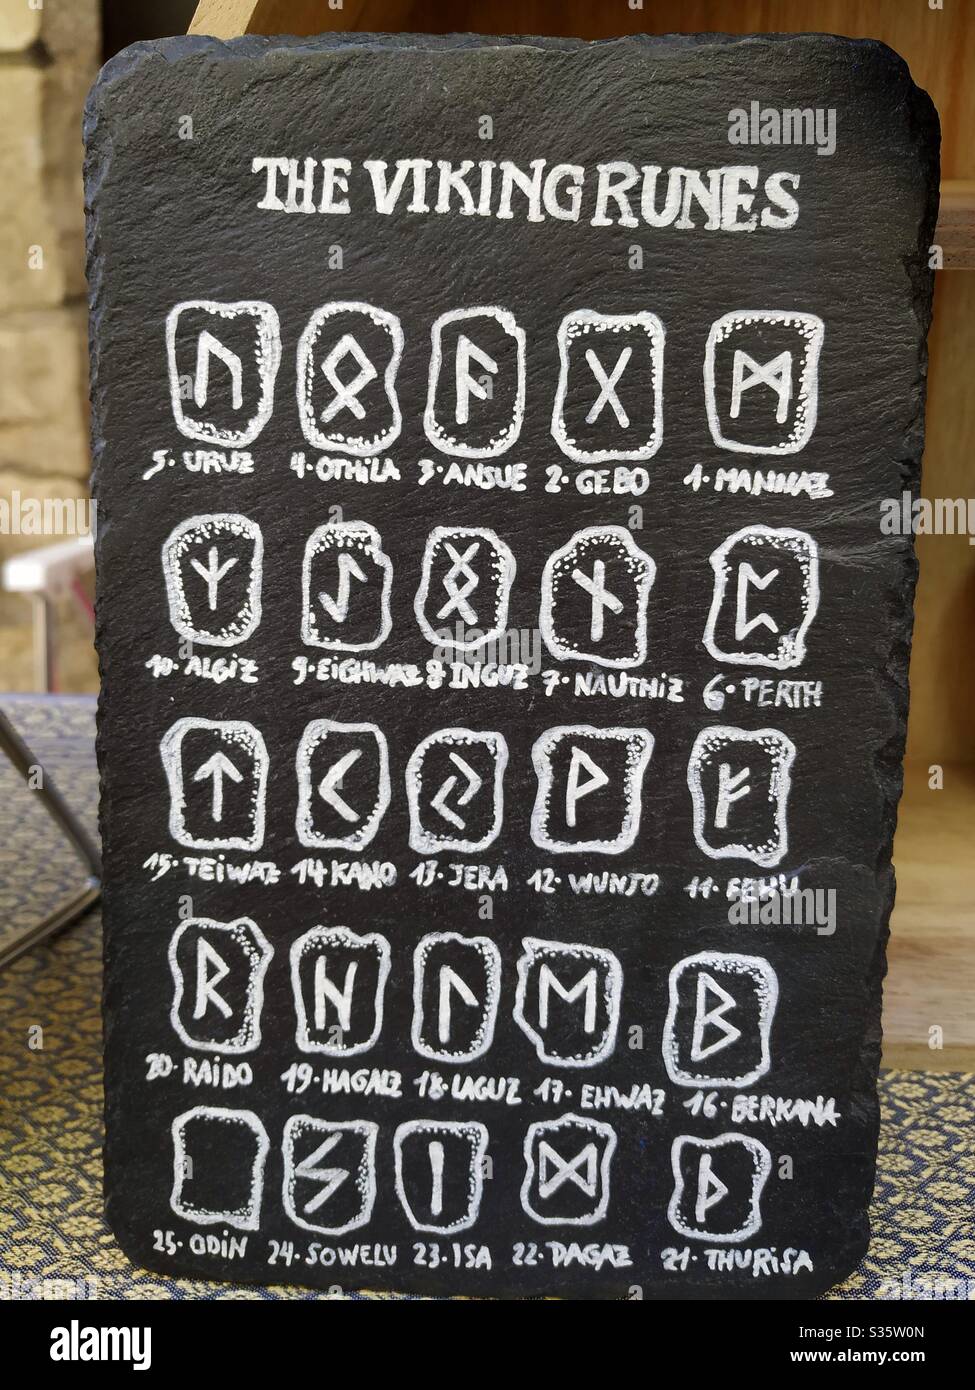 THE VIKING RUNES
ᚢ ᛟ ᚨ ᚷ ᛗ
5·URUZ 4·OTHILA 3·ANSUE 2·GEBO 1·MANNAZ
ᛉ ᛇ ᛝ ᚾ ᛈ
10·ALGIZ 9·EICHWAZ 8 INGUZ 7·NAUTHIZ 6·PERTH
ᛏ ᚲ ᛃ ᚹ ᚠ
15·TEIWAZ 14 KANO 13·JERA 12·WUNJO 11·FEHU
ᚱ ᚺ ᛚ ᛖ ᛒ
20·RAIDO 19·HAGALZ 18·LAGUZ 17·EHWAZ 16·BERKANA
ᛊ ᛁ ᛞ ᚦ
25·ODIN 24·SOWELU 23·ISA 22·DAGAZ 21·THURISA
alamy
Image ID: S35W0N
www.alamy.com